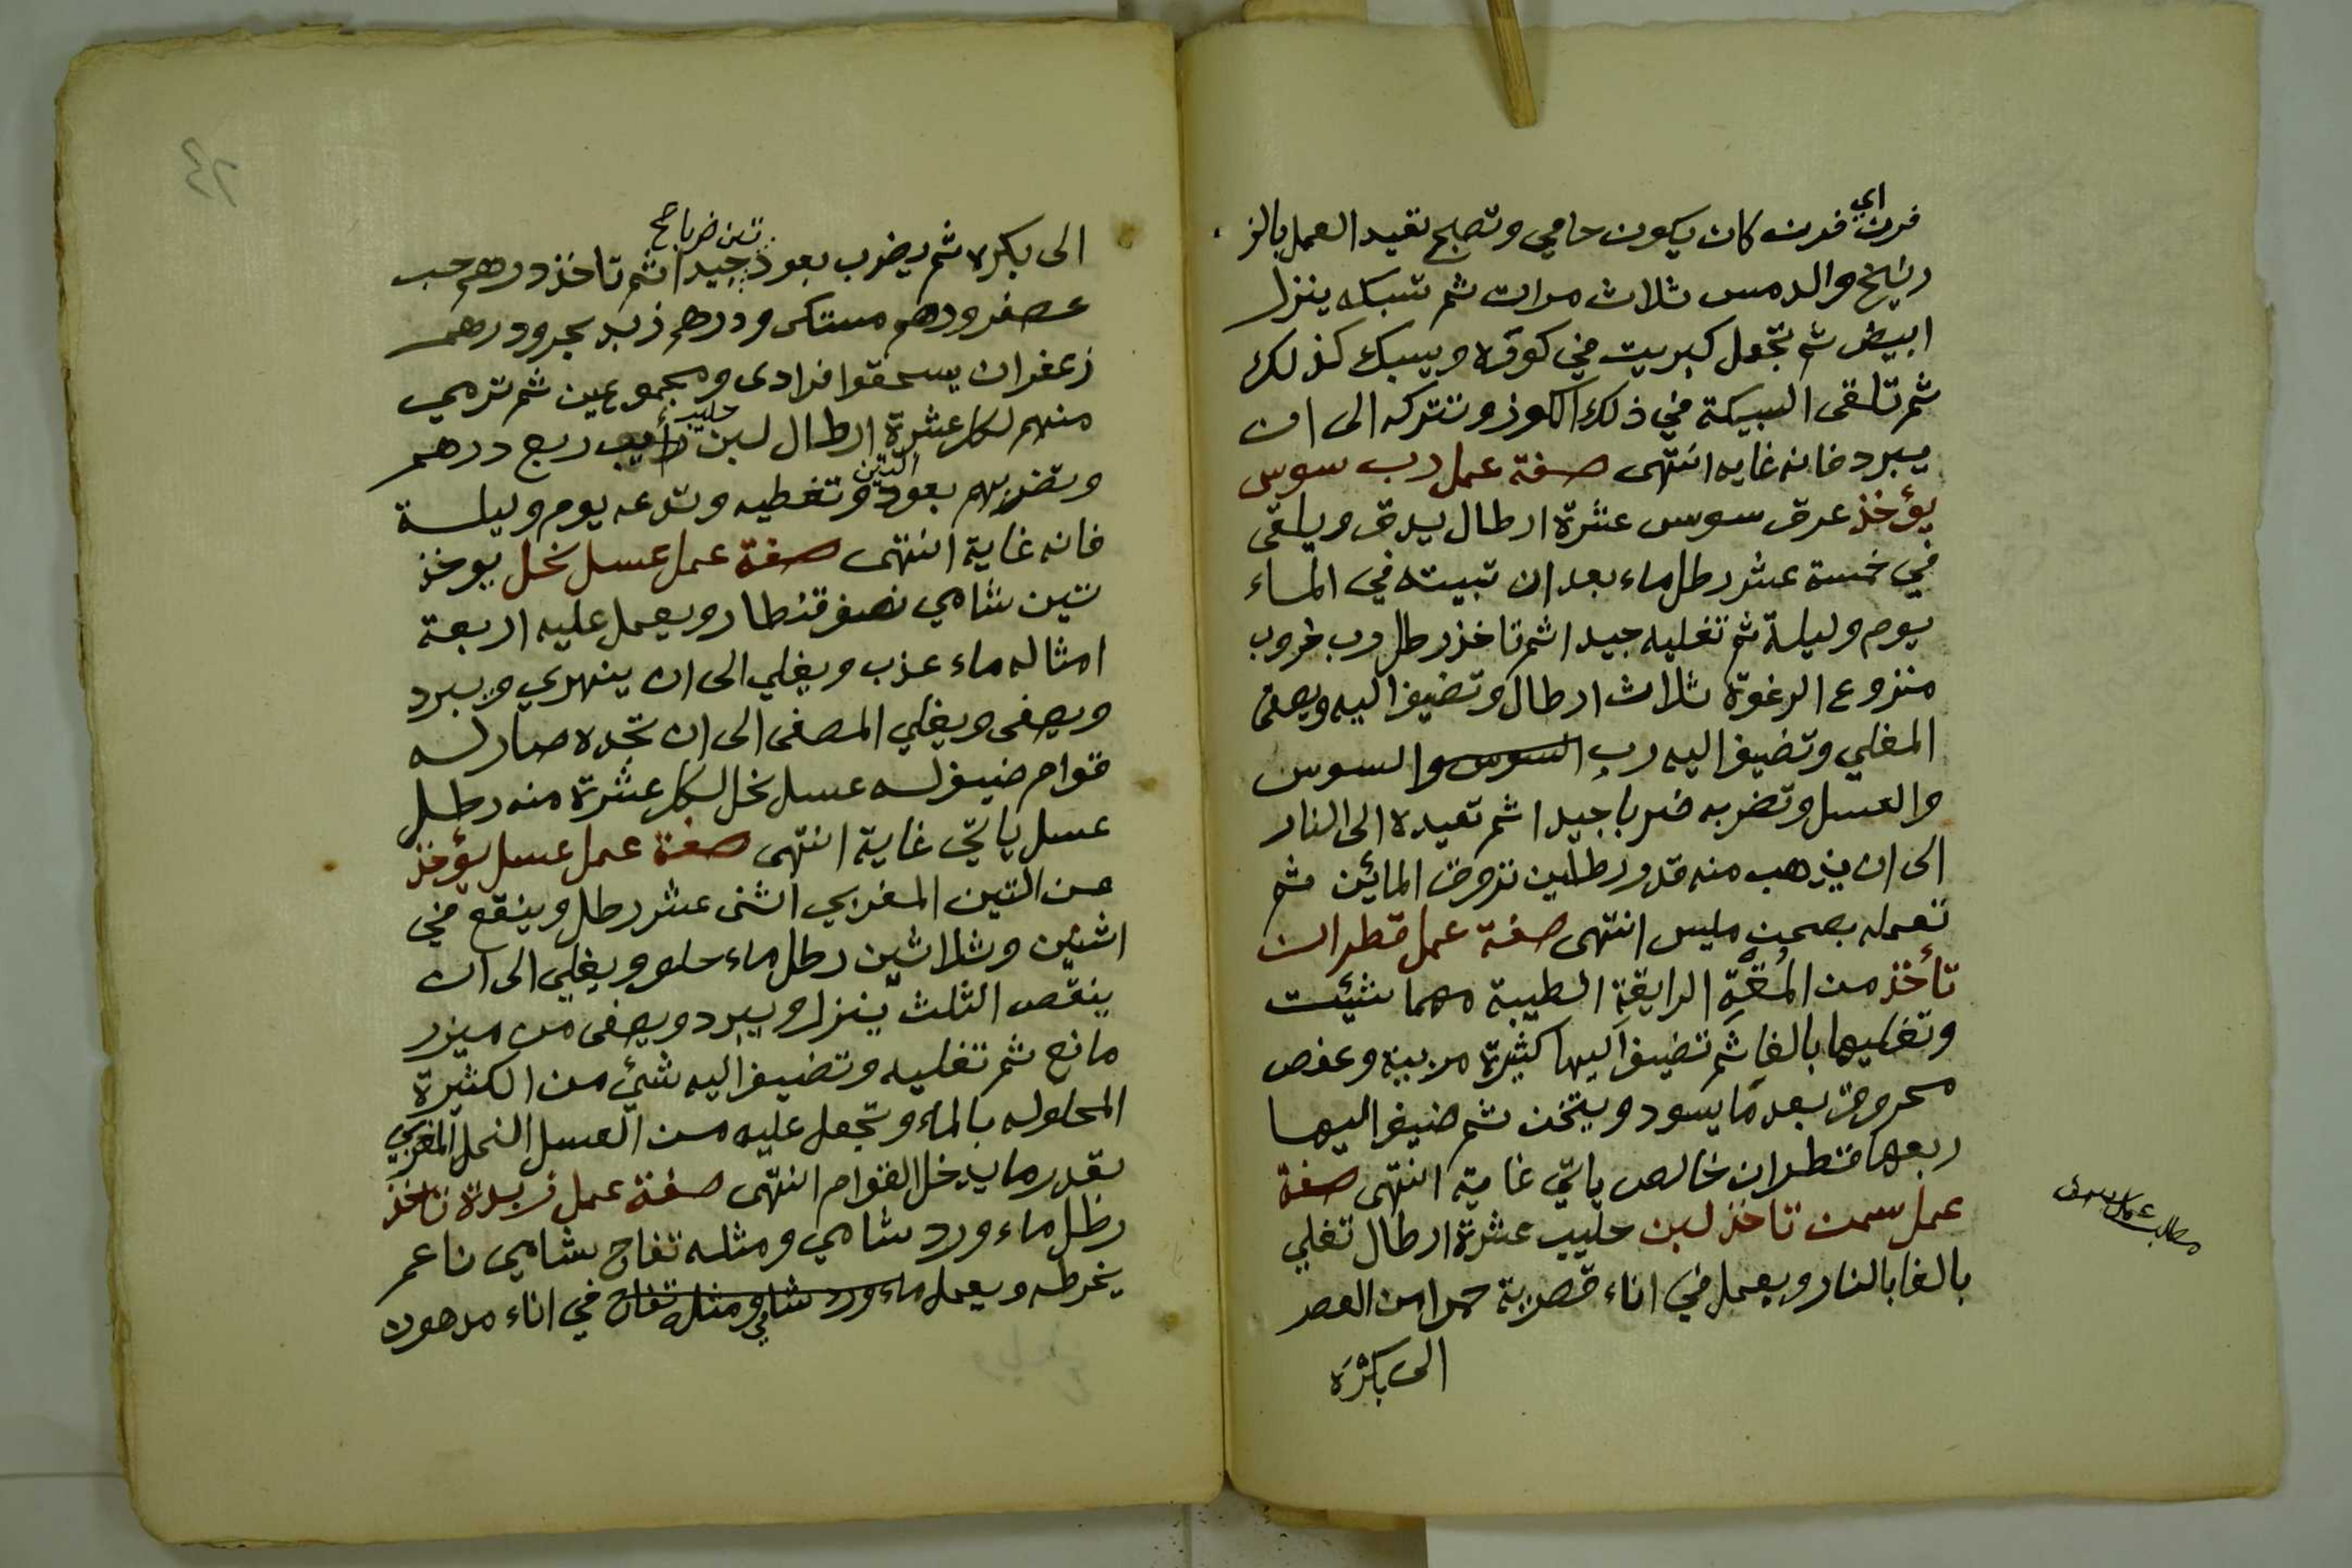 فرن اي فرن كان يكون حامي وتصبح تعيد العمل بالز
رنيخ والدمس ثلاث مرات ثم تسبكه ينزل
ابيض ثم تجعل كبريت في كوزه ويسبك كذلك
ثم تلقى السبيكة في ذلك الكوز وتتركه الى ان
يبرد فانه غايه انتهى صفة عمل رب سوس
يؤخذ عرق سوس عشرة ارطال يدق ويلقى
في خمسة عشر رطل ماء بعد ان تبيته في الماء
يوم وليلة ثم تغليه جيدا ثم تاخذ رطل رب خروب
منزوع الرغوة ثلاث ارطال وتضيف اليه ويصفى
المغلي وتضيف اليه رب السوس والسوس
والعسل وتضربه ضربا جيدا ثم تعيده الى النار
الى ان يذهب منه قدر رطلين تروق المائين ثم
تعمله بصحن مليس انتهى صفة عمل قطران
تأخذ من المُغَرَة الرايقة الطيبة مهما شئيت
وتغليها بالغا ثم تضيف اليها كثيرة مربية وعفص
محروق بعد ما يسود ويتخن ثم ضيف اليها
ربعها قطران خالص ياتي غاية انتهى صفة
عمل سمن تاخذ لبن حليب عشرة ارطال تغلي
بالغا بالنار ويعمل في اناء قصرية حمرا من العصر
الى بكرة
مطلب عمل سمن
٤٢
الى بكره ثم يضرب بعود تين ضرباً جيدا ثم تاخذ درهم حب
عصفر ودهم مستكى ودرهم زبد بحر ودرهم
زعفران يسحقوا فرادى ومجموعين ثم ترمي
منهم لكل عشرة ارطال لبن حليب رأيب ربع درهم
وتضربهم بعود التين وتغطيه وتدعه يوم وليلة
فانه غاية انتهى صفة عمل عسل نحل يوخذ
تين شامي نصف قنطار ويعمل عليه اربعة
امثاله ماء عذب ويغلي الى ان ينهري ويبرد
ويصفى ويغلي المصفى الى ان تجده صار له
قوام ضيف له عسل نحل لكل عشرة منه رطل
عسل ياتي غاية انتهى صفة عمل عسل يؤخذ
من التين المغربي اثنى عشر رطل وينقع في
اثنين وثلاثين رطل ماء حلو ويغلي الى ان
ينقص الثلث ينزل ويبرد ويصفى من ميزر
مانع ثم تغليه وتضيف اليه شئ من الكثيرة
المحلوله بالماء وتجعل عليه من العسل النحل المغربي
بقدر ما يدخل القوام انتهى صفة عمل زبدة تاخذ
رطل ماء ورد شامي ومثله تفاح شامي ناعم
يخرطه ويعمل ماء ورد شامي ومثله تفاح في اناء مدهون